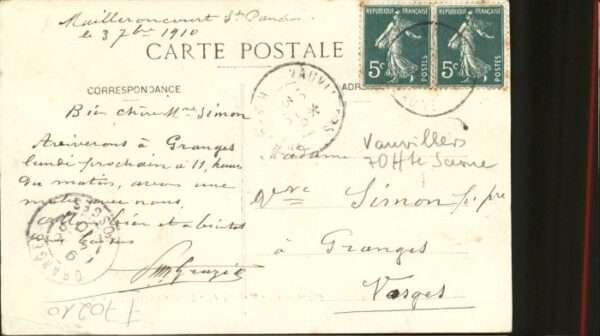 Mailleroncourt St Pancras
le 3 7bre 1910
CARTE POSTALE
RÉPUBLIQUE FRANÇAISE
RÉPUBLIQUE FRANÇAISE
5c POSTES
5c POSTES
CORRESPONDANCE
ADR
VAUVILLERS
Bien chère Mme Simon
Arriverons à Granges
lundi prochain à 11 heures
du matin, avons une
avec nous.
bien et à bientôt
Madame
Vauvillers
70 Hte Saône
Vve Simon
à Granges
Vosges
GRANGES
70210